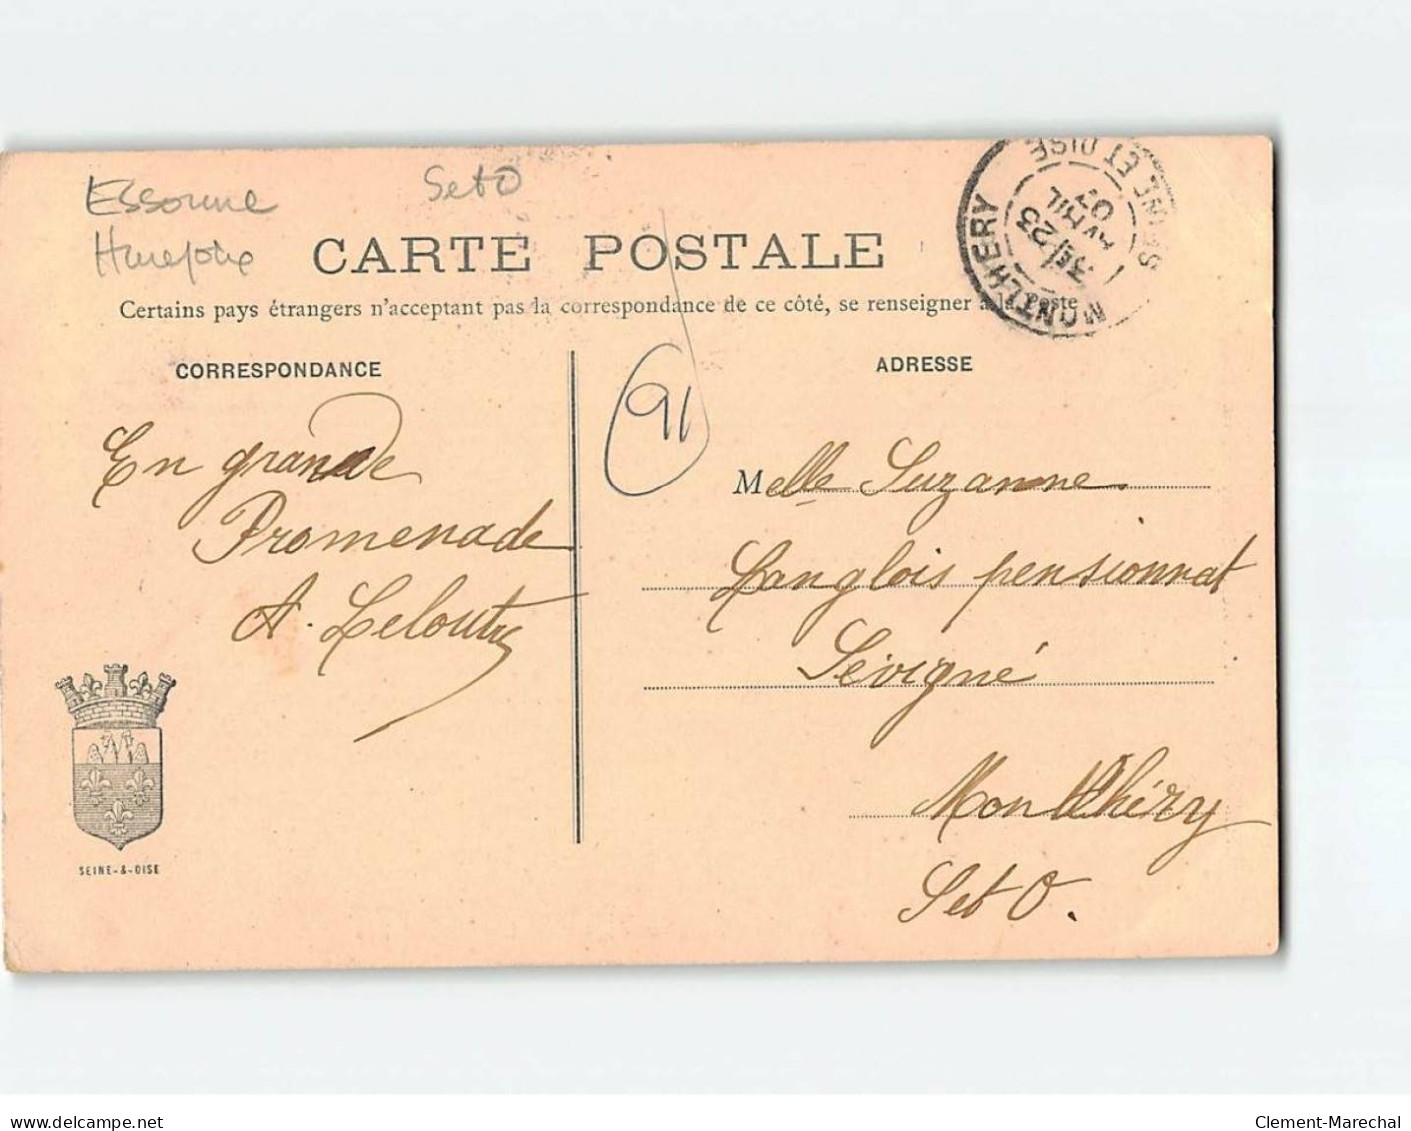 Essonne
SetO
CARTE POSTALE
Certains pays étrangers n'acceptent pas la correspondance de ce côté, se renseigner à la Poste
MONTLHERY
SEINE ET OISE
23
AVRIL
07
CORRESPONDANCE
ADRESSE
91
En grande
Promenade
A. Leloutre
Melle Suzanne
Langlois pensionnat
Sévigné
Montlhéry
S et O.
SEINE-&-OISE
www.delcampe.net
Clement-Marechal